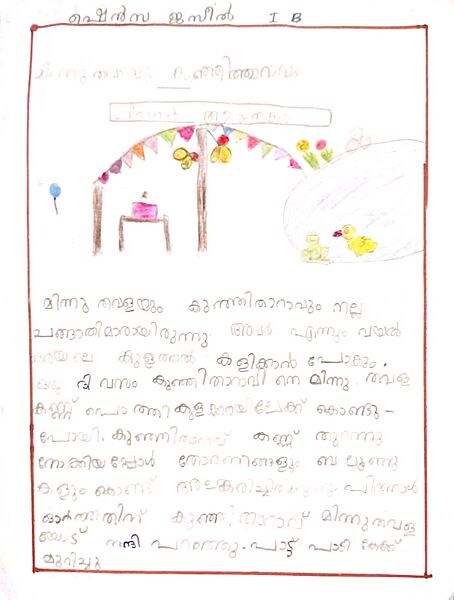 ഷെൻസ ജസീൽ I B
മിന്നുതവളയും കുഞ്ഞിത്താറാവും
പിറന്നാൾ ആശംസകൾ
മിന്നു തവളയും കുഞ്ഞിതാറാവും നല്ല
ചങ്ങാതിമാരായിരുന്നു. അവർ എന്നും വയൽ
കുളത്തൽ കളിക്കാൻ പോകും.
ഒരു ദിവസം കുഞ്ഞിതാറാവി നെ മിന്നു തവള
കണ്ണ് പൊത്തി കുളക്കരയിലേക്ക് കൊണ്ടു-
പോയി. കുഞ്ഞിതാറാവ് കണ്ണ് തുറന്നു
നോക്കിയപ്പോൾ തോരണങ്ങളും ബ ലൂണു
കളും കൊണ്ട് പിറന്നാൾ
ഓർത്തതിന് കുഞ്ഞിതാറാവ് മിന്നുതവള
യോട് നന്ദി പറഞ്ഞു. പാട്ട് പാടി കേക്ക്
മുറിച്ചു